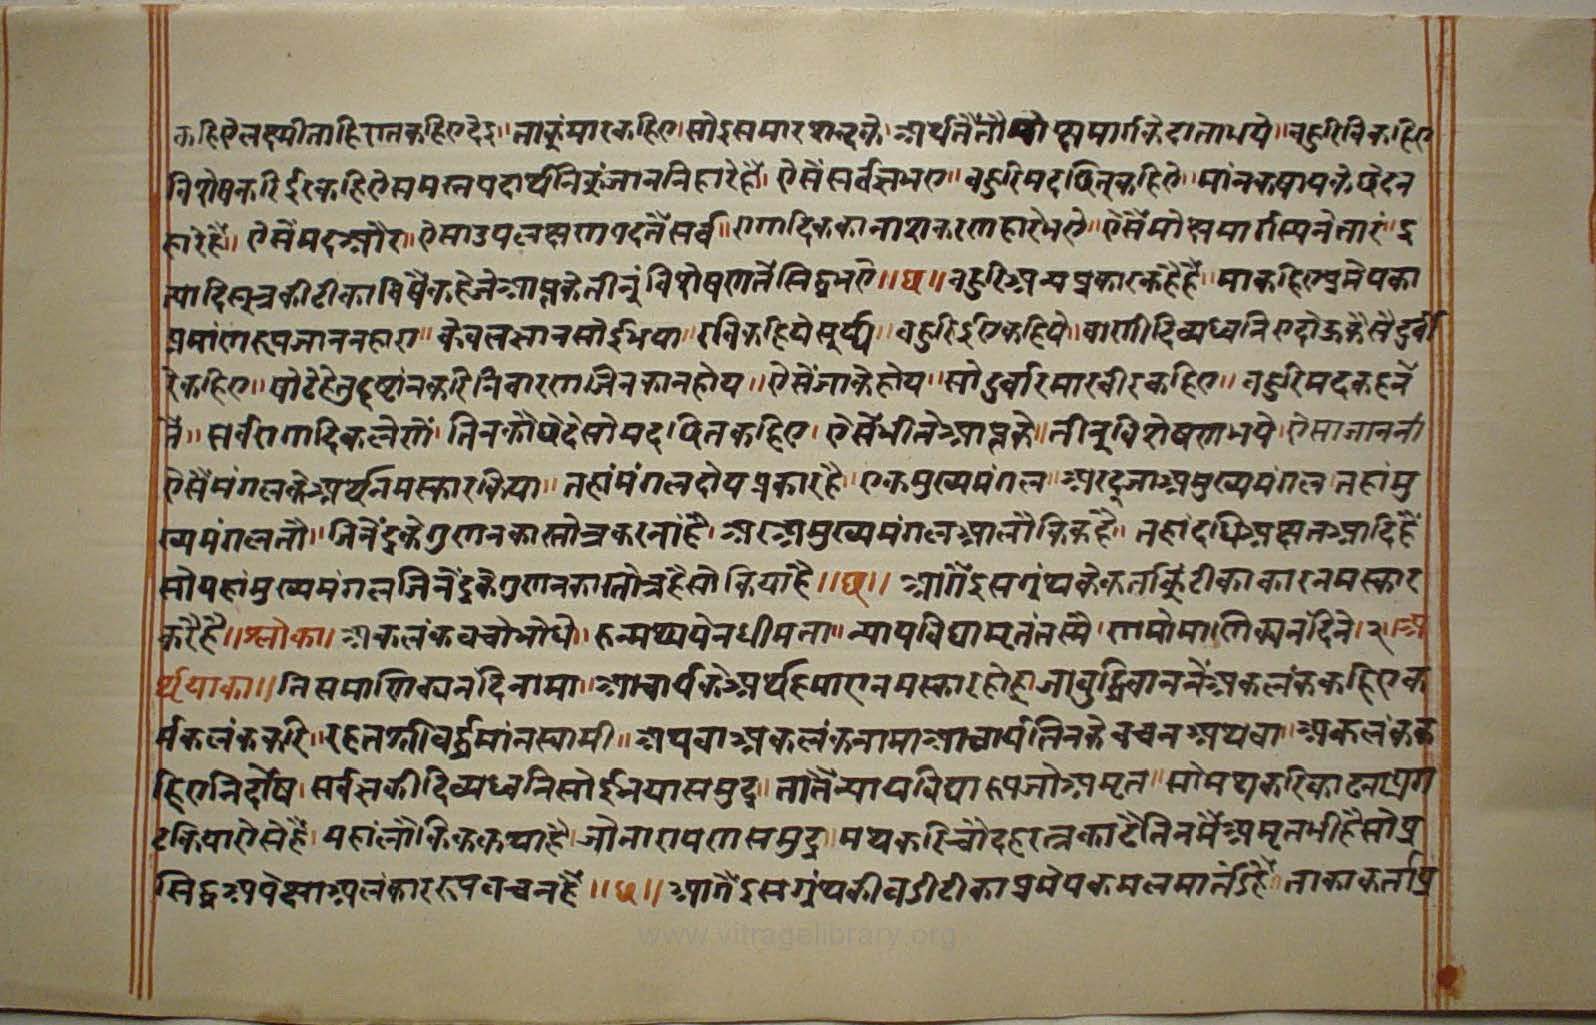 कहिऐलक्ष्मीताहिरातकहिएदेइ॥ताकूंमारकहिए।सोइसमारशब्दके।अर्थतैंतौमोक्षमार्गकेदाताभये॥बहुरिविकहिए
विशेषकरिईरकहिऐसमस्तपदार्थनिकूंजाननिहारेहैं।ऐसैंसर्वज्ञभए॥बहुरिमदछित्कहिऐ॥मांनकषायकेछेदन
हारेहैं॥ऐसैंमदअौर॥ऐसाउपलक्षणपदतैंसर्व॥रागादिककानाशकरणहारेभऐ॥ऐसैंमोक्षमार्गस्यनेतारं॥इ
त्यादिसूत्रकीटीकाविषैंकहेजेआप्तकेतीनूंविशेषणतेंसिद्धभऐ॥छ॥बहुरिअन्यप्रकारकहैहैं॥माकहिएप्रमेयका
प्रमांणरूपजाननहारा॥केवलज्ञानसोईभया॥रविकहियेसूर्य्य॥बहुरिईराकहिये॥वाणीदिव्यध्वनिएदोऊकैसैदुर्वा
रेकहिए॥षोटेहेतुदृष्टांतकरिनिवारणजिनकानहोय॥ऐसेंजाकेहोय॥सोदुर्वारमारवीरकहिए॥बहुरिमदकहनें
तैं॥सर्वरागादिकलेणों।तिनकौंछेदेसोमदछितकहिए।ऐसेंभीतेआप्तके॥तीनूविशेषणभये।ऐसाजाननां
ऐसैंमंगलकेअर्थनमस्कारकिया॥तहांमंगलदोयप्रकारहै।एकमुख्यमंगल॥अरदूजाअमुख्यमंगल।तहांमु
ख्यमंगलतौ॥जिनेंद्रकेगुणनकास्तोत्रकरनांहै।अरअमुख्यमंगलआलौकिकहै॥तहांदधिअक्षतआदिहैं
सोयहांमुख्यमंगलजिनेंद्रकेगुणनकास्तोत्रहैसोकियाहै॥छ॥आगैंइसग्रंथकेकर्ताकूंटीकाकारनमस्कार
करैहै॥श्लोका।अकलंकवचोंभोधे॥रुन्मथ्ययेनधीमता॥न्यायविद्यामृतंतस्मै।णमोमाणिक्यनंदिने।२।अ
र्थयाका॥तिसमाणिक्यनंदिनामा॥आचार्यकेअर्थहमारानमस्कारहोहूजाबुद्धिवाननैंअकलंककहिएक
र्मकलंककरि॥रहितश्रीवर्द्धमांनस्वामी॥अथवाअकलंकनामाआचार्यतिनकेवचनअथवा॥अकलंकक
हिएनिर्दोष।सर्वज्ञकीदिव्यध्वनिसोईभयासमुद्र॥तातैंन्यायविद्यारूपजोअमृत॥सोमथकरिकाढताप्रग
टकियाऐसेहैं।यहांलौकिककथाहै।जोनारायणसमुद्र।मथकरिचौदहरत्नकाढैतिनमैंअमृतभीहैसोप्र
सिद्धअपेक्षाअलंकाररूपवचनहै॥छ॥आगैंइसग्रंथकीबडीटीकाप्रमेयकमलमार्तंडहै।ताकाकर्ताप्र
www.vitragelibrary.org